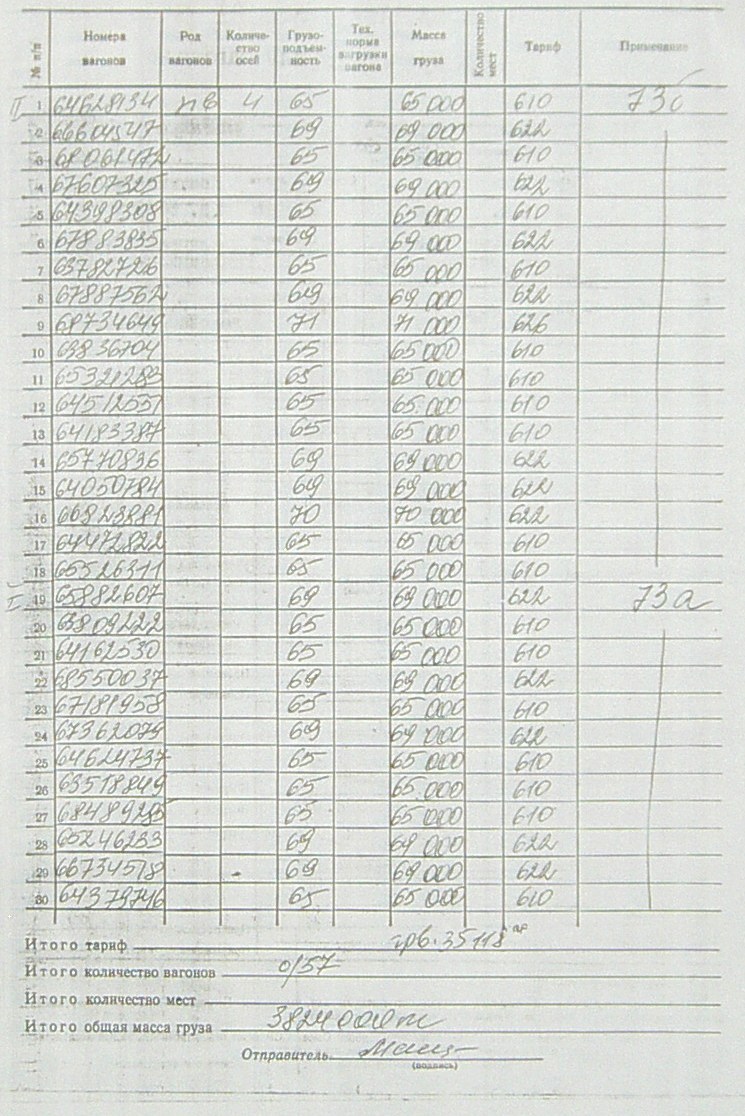 № п/п Номера вагонов Род вагонов Количество осей Грузоподъемность Тех. норма загрузки вагона Масса груза Количество мест Тариф Примечание
II 1 64628134 пв 4 65 65 000 610 73б
2 66604547 69 69 000 622
3 68061472 65 65 000 610
4 67607325 69 69 000 622
5 64398308 65 65 000 610
6 67883835 69 69 000 622
7 63782726 65 65 000 610
8 67887562 69 69 000 622
9 68734649 71 71 000 626
10 63836704 65 65 000 610
11 65321283 65 65 000 610
12 64512557 65 65 000 610
13 64183387 65 65 000 610
14 65770836 69 69 000 622
15 64050784 69 69 000 622
16 66823881 70 70 000 622
17 64472822 65 65 000 610
18 65526311 65 65 000 610
I 19 65882607 69 69 000 622 73а
20 63809222 65 65 000 610
21 64162530 65 65 000 610
22 68550037 69 69 000 622
23 67181958 65 65 000 610
24 67362074 69 69 000 622
25 64624737 65 65 000 610
26 63518849 65 65 000 610
27 68489285 65 65 000 610
28 65246233 69 69 000 622
29 66734578 69 69 000 622
30 64379746 65 65 000 610
Итого тариф грв. 35118
Итого количество вагонов 0/57
Итого количество мест
Итого общая масса груза 3824000
Отправитель
(подпись)